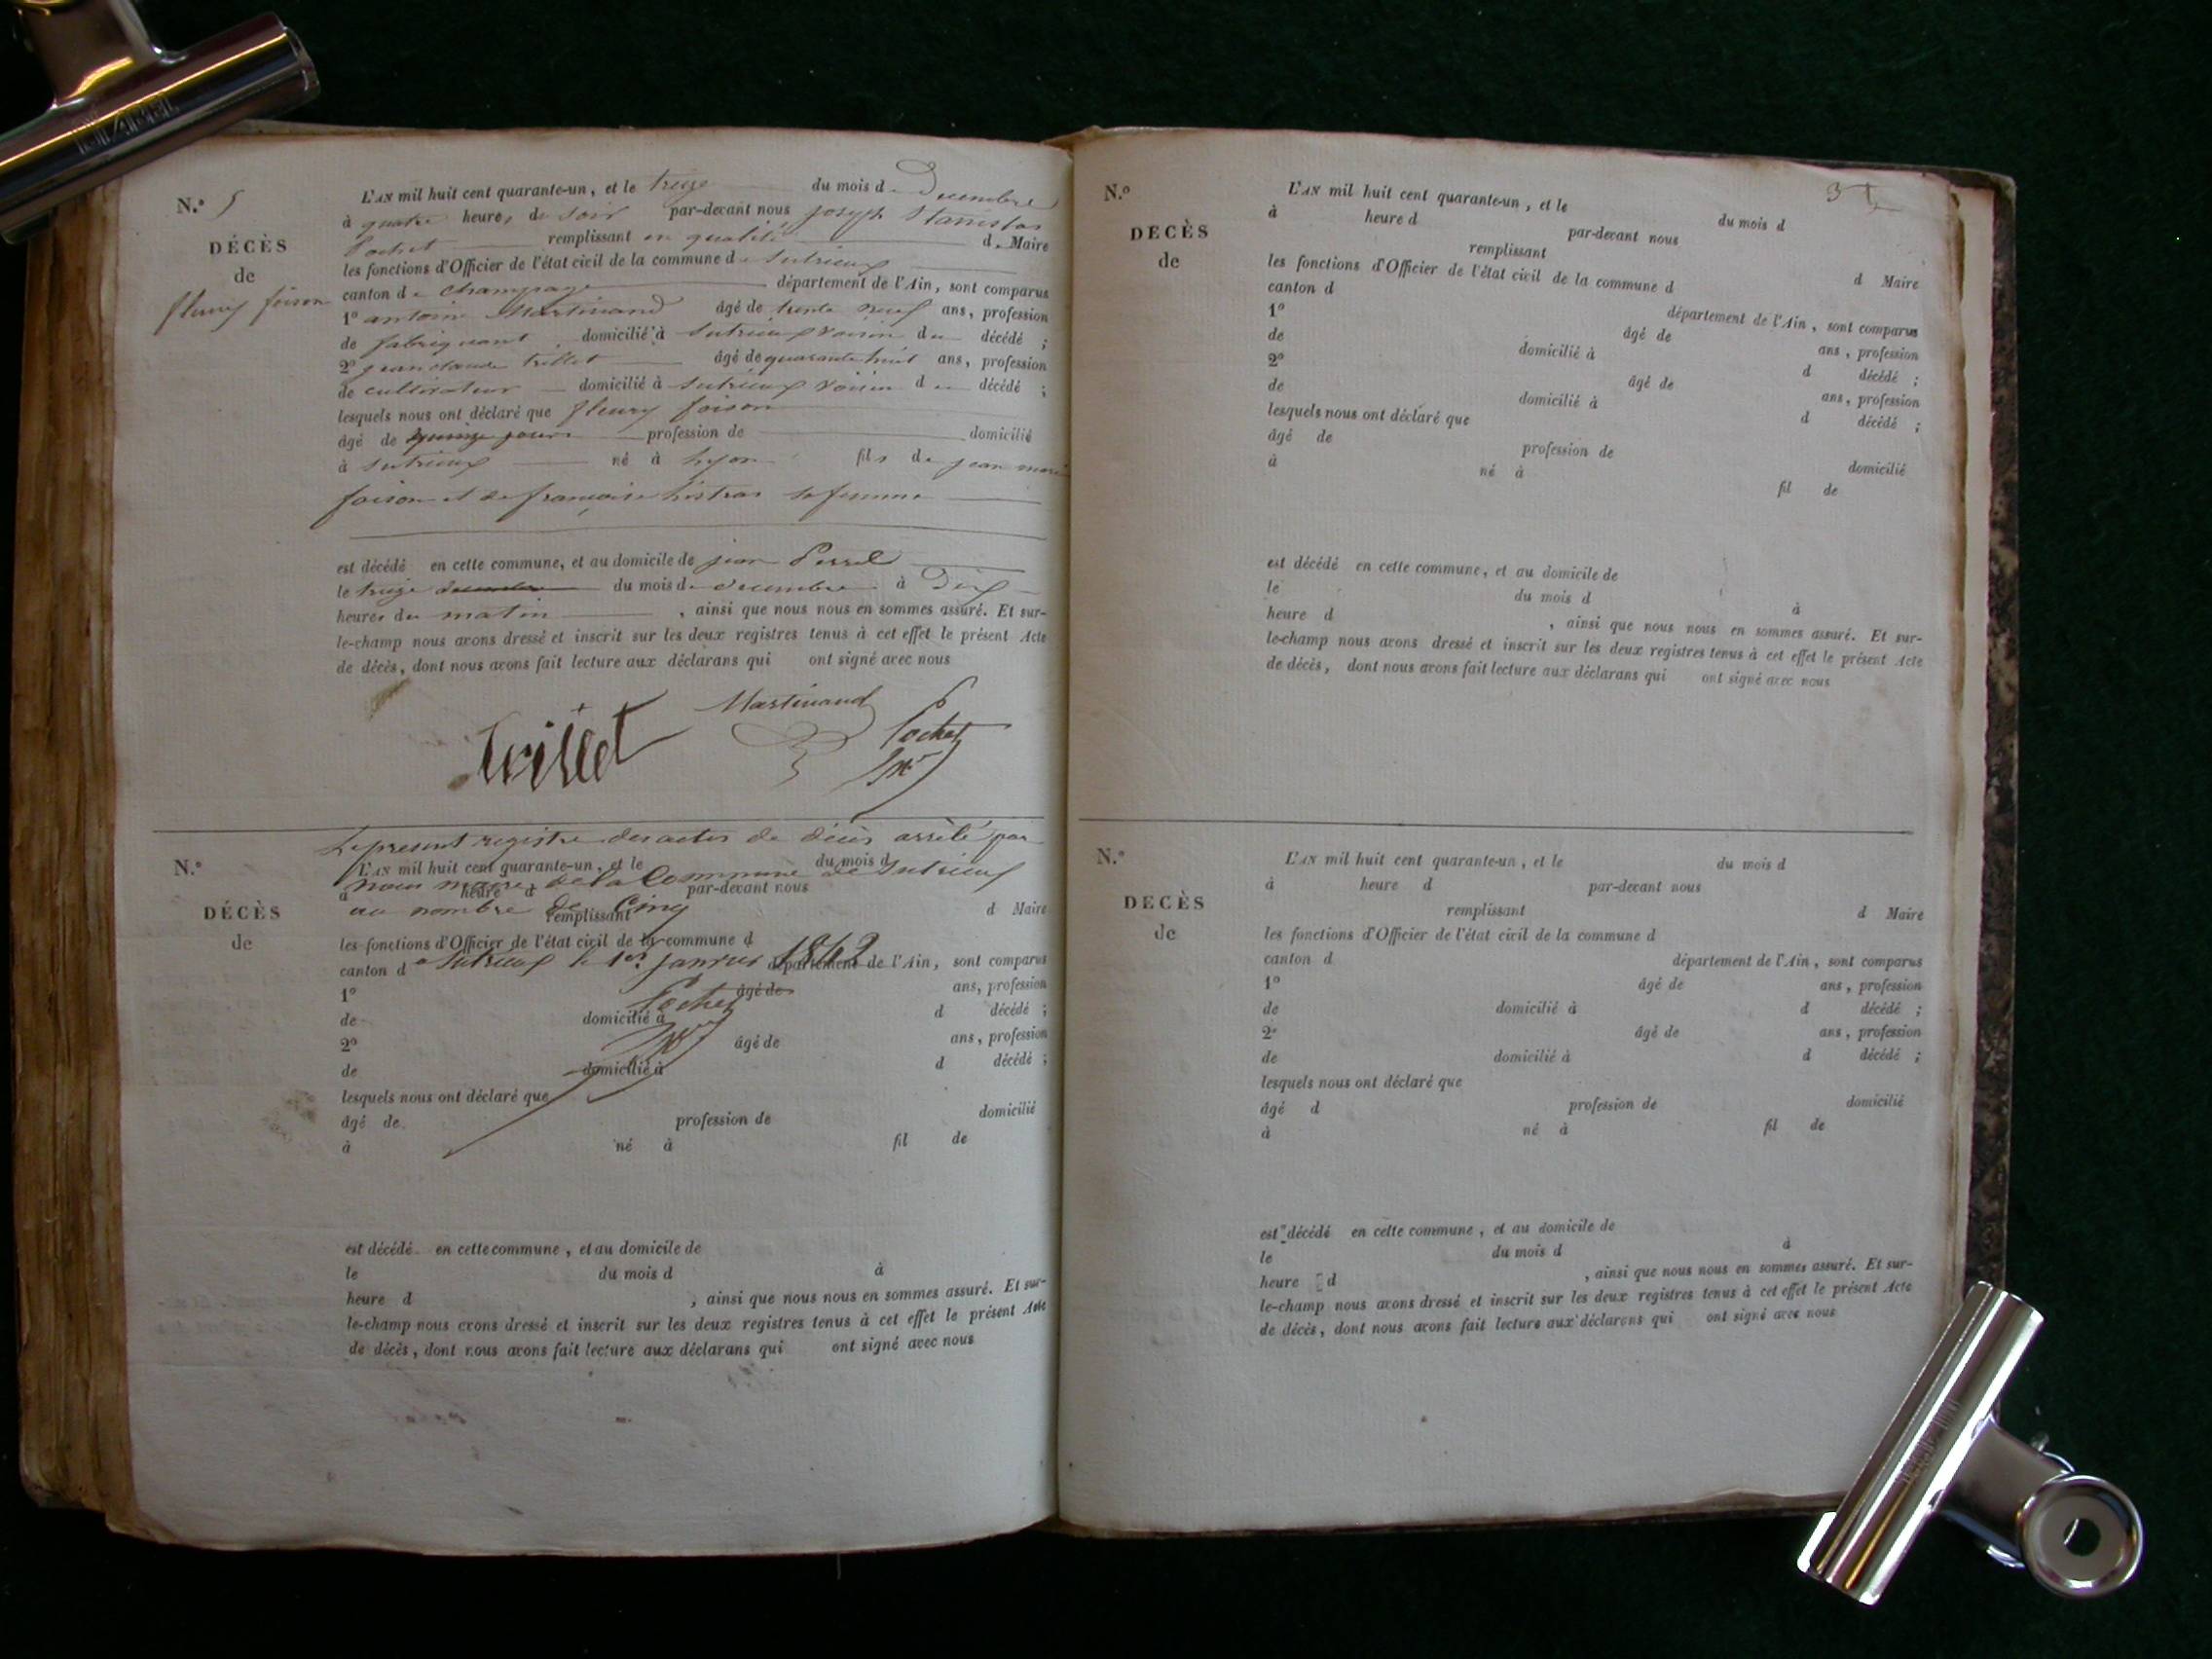 N.° 5
DÉCÈS
de
fleury foison
L'AN mil huit cent quarante-un, et le treize du mois de Decembre
à quatre heures du soir par-devant nous joseph Stanislas
Pochet remplissant en qualité de Maire
les fonctions d'Officier de l'état civil de la commune de Sutrieux
canton de Champagne département de l'Ain, sont comparus
1° antoine Martinand âgé de trente neuf ans, profession
de fabriquant domicilié à Sutrieux voisin du décédé ;
2° jean claude trillet âgé de quarante huit ans, profession
de cultivateur domicilié à Sutrieux voisin du décédé ;
lesquels nous ont déclaré que fleury foison
âgé de quinze jours profession de domicilié
à Sutrieux né à lyon fils de jean marie
foison et de françoise sa femme
est décédé en cette commune, et au domicile de jean Perret
le treize decembre du mois de decembre à Dix
heures du matin , ainsi que nous nous en sommes assuré. Et sur-
le-champ nous avons dressé et inscrit sur les deux registres tenus à cet effet le présent Acte
de décès, dont nous avons fait lecture aux déclarans qui ont signé avec nous
trillet Martinand Pochet
N.°
DÉCÈS
de
Le present registre des actes de décès arrêté par
L'AN mil huit cent quarante-un, et le du mois d
nous maire de la Commune de Sutrieux
à heure d par-devant nous
au nombre de Cinq
remplissant d Maire
les fonctions d'Officier de l'état civil de la commune d
a Sutrieux le 1er janvier 1842
canton d département de l'Ain, sont comparus
1° âgé de ans, profession
Pochet
de domicilié à d décédé ;
2° âgé de ans, profession
de domicilié à d décédé ;
lesquels nous ont déclaré que
âgé de profession de domicilié
à né à fil de
est décédé en cette commune, et au domicile de
le du mois d à
heure d , ainsi que nous nous en sommes assuré. Et sur-
le-champ nous avons dressé et inscrit sur les deux registres tenus à cet effet le présent Acte
de décès, dont nous avons fait lecture aux déclarans qui ont signé avec nous
3
N.°
DÉCÈS
de
L'AN mil huit cent quarante-un, et le du mois d
à heure d par-devant nous
remplissant d Maire
les fonctions d'Officier de l'état civil de la commune d
canton d département de l'Ain, sont comparus
1° âgé de ans, profession
de domicilié à d décédé ;
2° âgé de ans, profession
de domicilié à d décédé ;
lesquels nous ont déclaré que
âgé de profession de domicilié
à né à fil de
est décédé en cette commune, et au domicile de
le du mois d à
heure d , ainsi que nous nous en sommes assuré. Et sur-
le-champ nous avons dressé et inscrit sur les deux registres tenus à cet effet le présent Acte
de décès, dont nous avons fait lecture aux déclarans qui ont signé avec nous
N.°
DÉCÈS
de
L'AN mil huit cent quarante-un, et le du mois d
à heure d par-devant nous
remplissant d Maire
les fonctions d'Officier de l'état civil de la commune d
canton d département de l'Ain, sont comparus
1° âgé de ans, profession
de domicilié à d décédé ;
2° âgé de ans, profession
de domicilié à d décédé ;
lesquels nous ont déclaré que
âgé d profession de domicilié
à né à fil de
est décédé en cette commune, et au domicile de
le du mois d à
heure d , ainsi que nous nous en sommes assuré. Et sur-
le-champ nous avons dressé et inscrit sur les deux registres tenus à cet effet le présent Acte
de décès, dont nous avons fait lecture aux déclarans qui ont signé avec nous